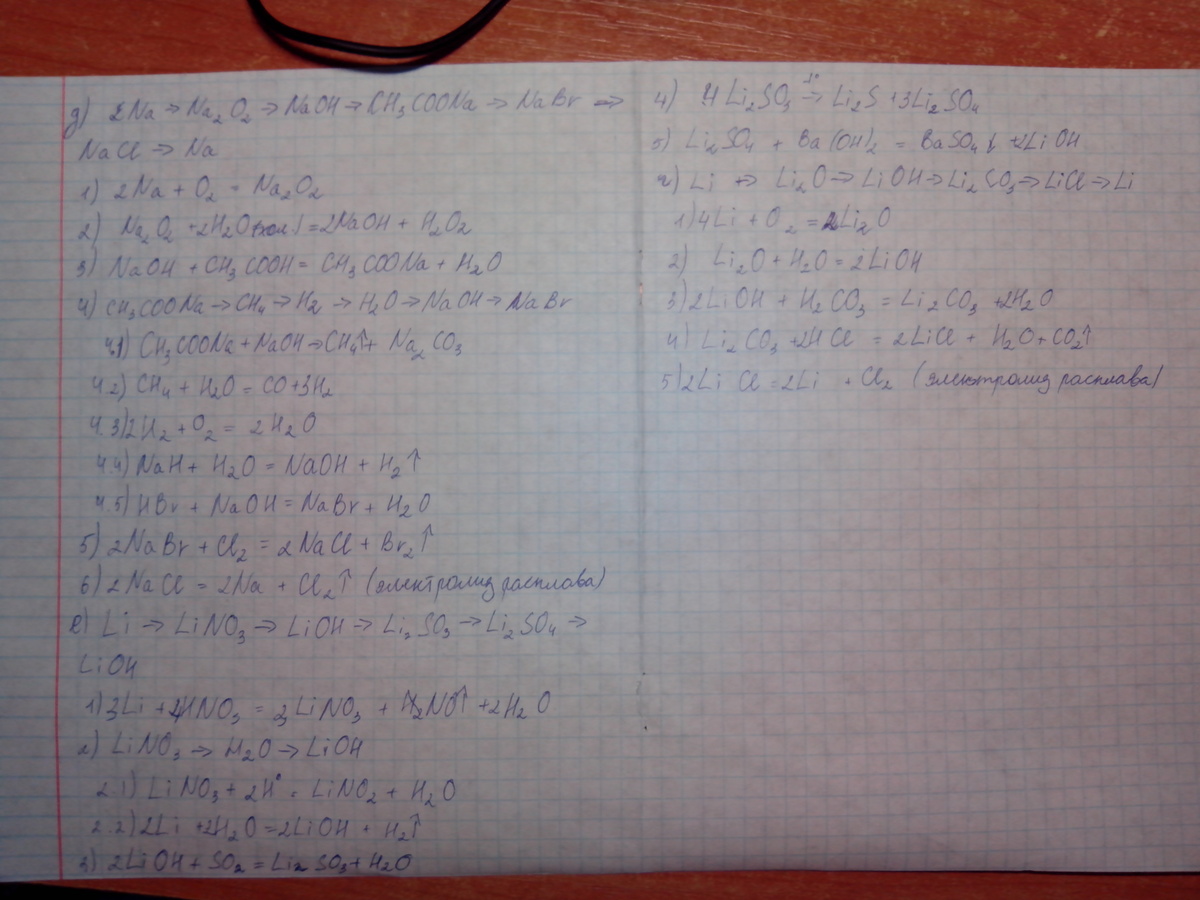 д) 2Na → Na₂O₂ → NaOH → CH₃COONa → NaBr →
NaCl → Na
1) 2Na + O₂ = Na₂O₂
2) Na₂O₂ + 2H₂O(хол) = 2NaOH + H₂O₂
3) NaOH + CH₃COOH = CH₃COONa + H₂O
4) CH₃COONa → CH₄ → H₂ → H₂O → NaOH → NaBr
4.1) CH₃COONa + NaOH → CH₄↑ + Na₂CO₃
4.2) CH₄ + H₂O = CO + 3H₂
4.3) 2H₂ + O₂ = 2H₂O
4.4) NaH + H₂O = NaOH + H₂↑
4.5) HBr + NaOH = NaBr + H₂O
5) 2NaBr + Cl₂ = 2NaCl + Br₂↑
6) 2NaCl = 2Na + Cl₂↑ (электролиз расплава)
е) Li → LiNO₃ → LiOH → Li₂SO₃ → Li₂SO₄ →
LiOH
1) 3Li + 4HNO₃ = 3LiNO₃ + NO↑ + 2H₂O
2) LiNO₃ → H₂O → LiOH
2.1) LiNO₃ + 2H° = LiNO₂ + H₂O
2.2) 2Li + 2H₂O = 2LiOH + H₂↑
3) 2LiOH + SO₂ = Li₂SO₃ + H₂O
4) 4Li₂SO₃ →t° Li₂S + 3Li₂SO₄
5) Li₂SO₄ + Ba(OH)₂ = BaSO₄↓ + 2LiOH
г) Li → Li₂O → LiOH → Li₂CO₃ → LiCl → Li
1) 4Li + O₂ = 2Li₂O
2) Li₂O + H₂O = 2LiOH
3) 2LiOH + H₂CO₃ = Li₂CO₃ + 2H₂O
4) Li₂CO₃ + 2HCl = 2LiCl + H₂O + CO₂↑
5) 2LiCl = 2Li + Cl₂ (электролиз расплава)